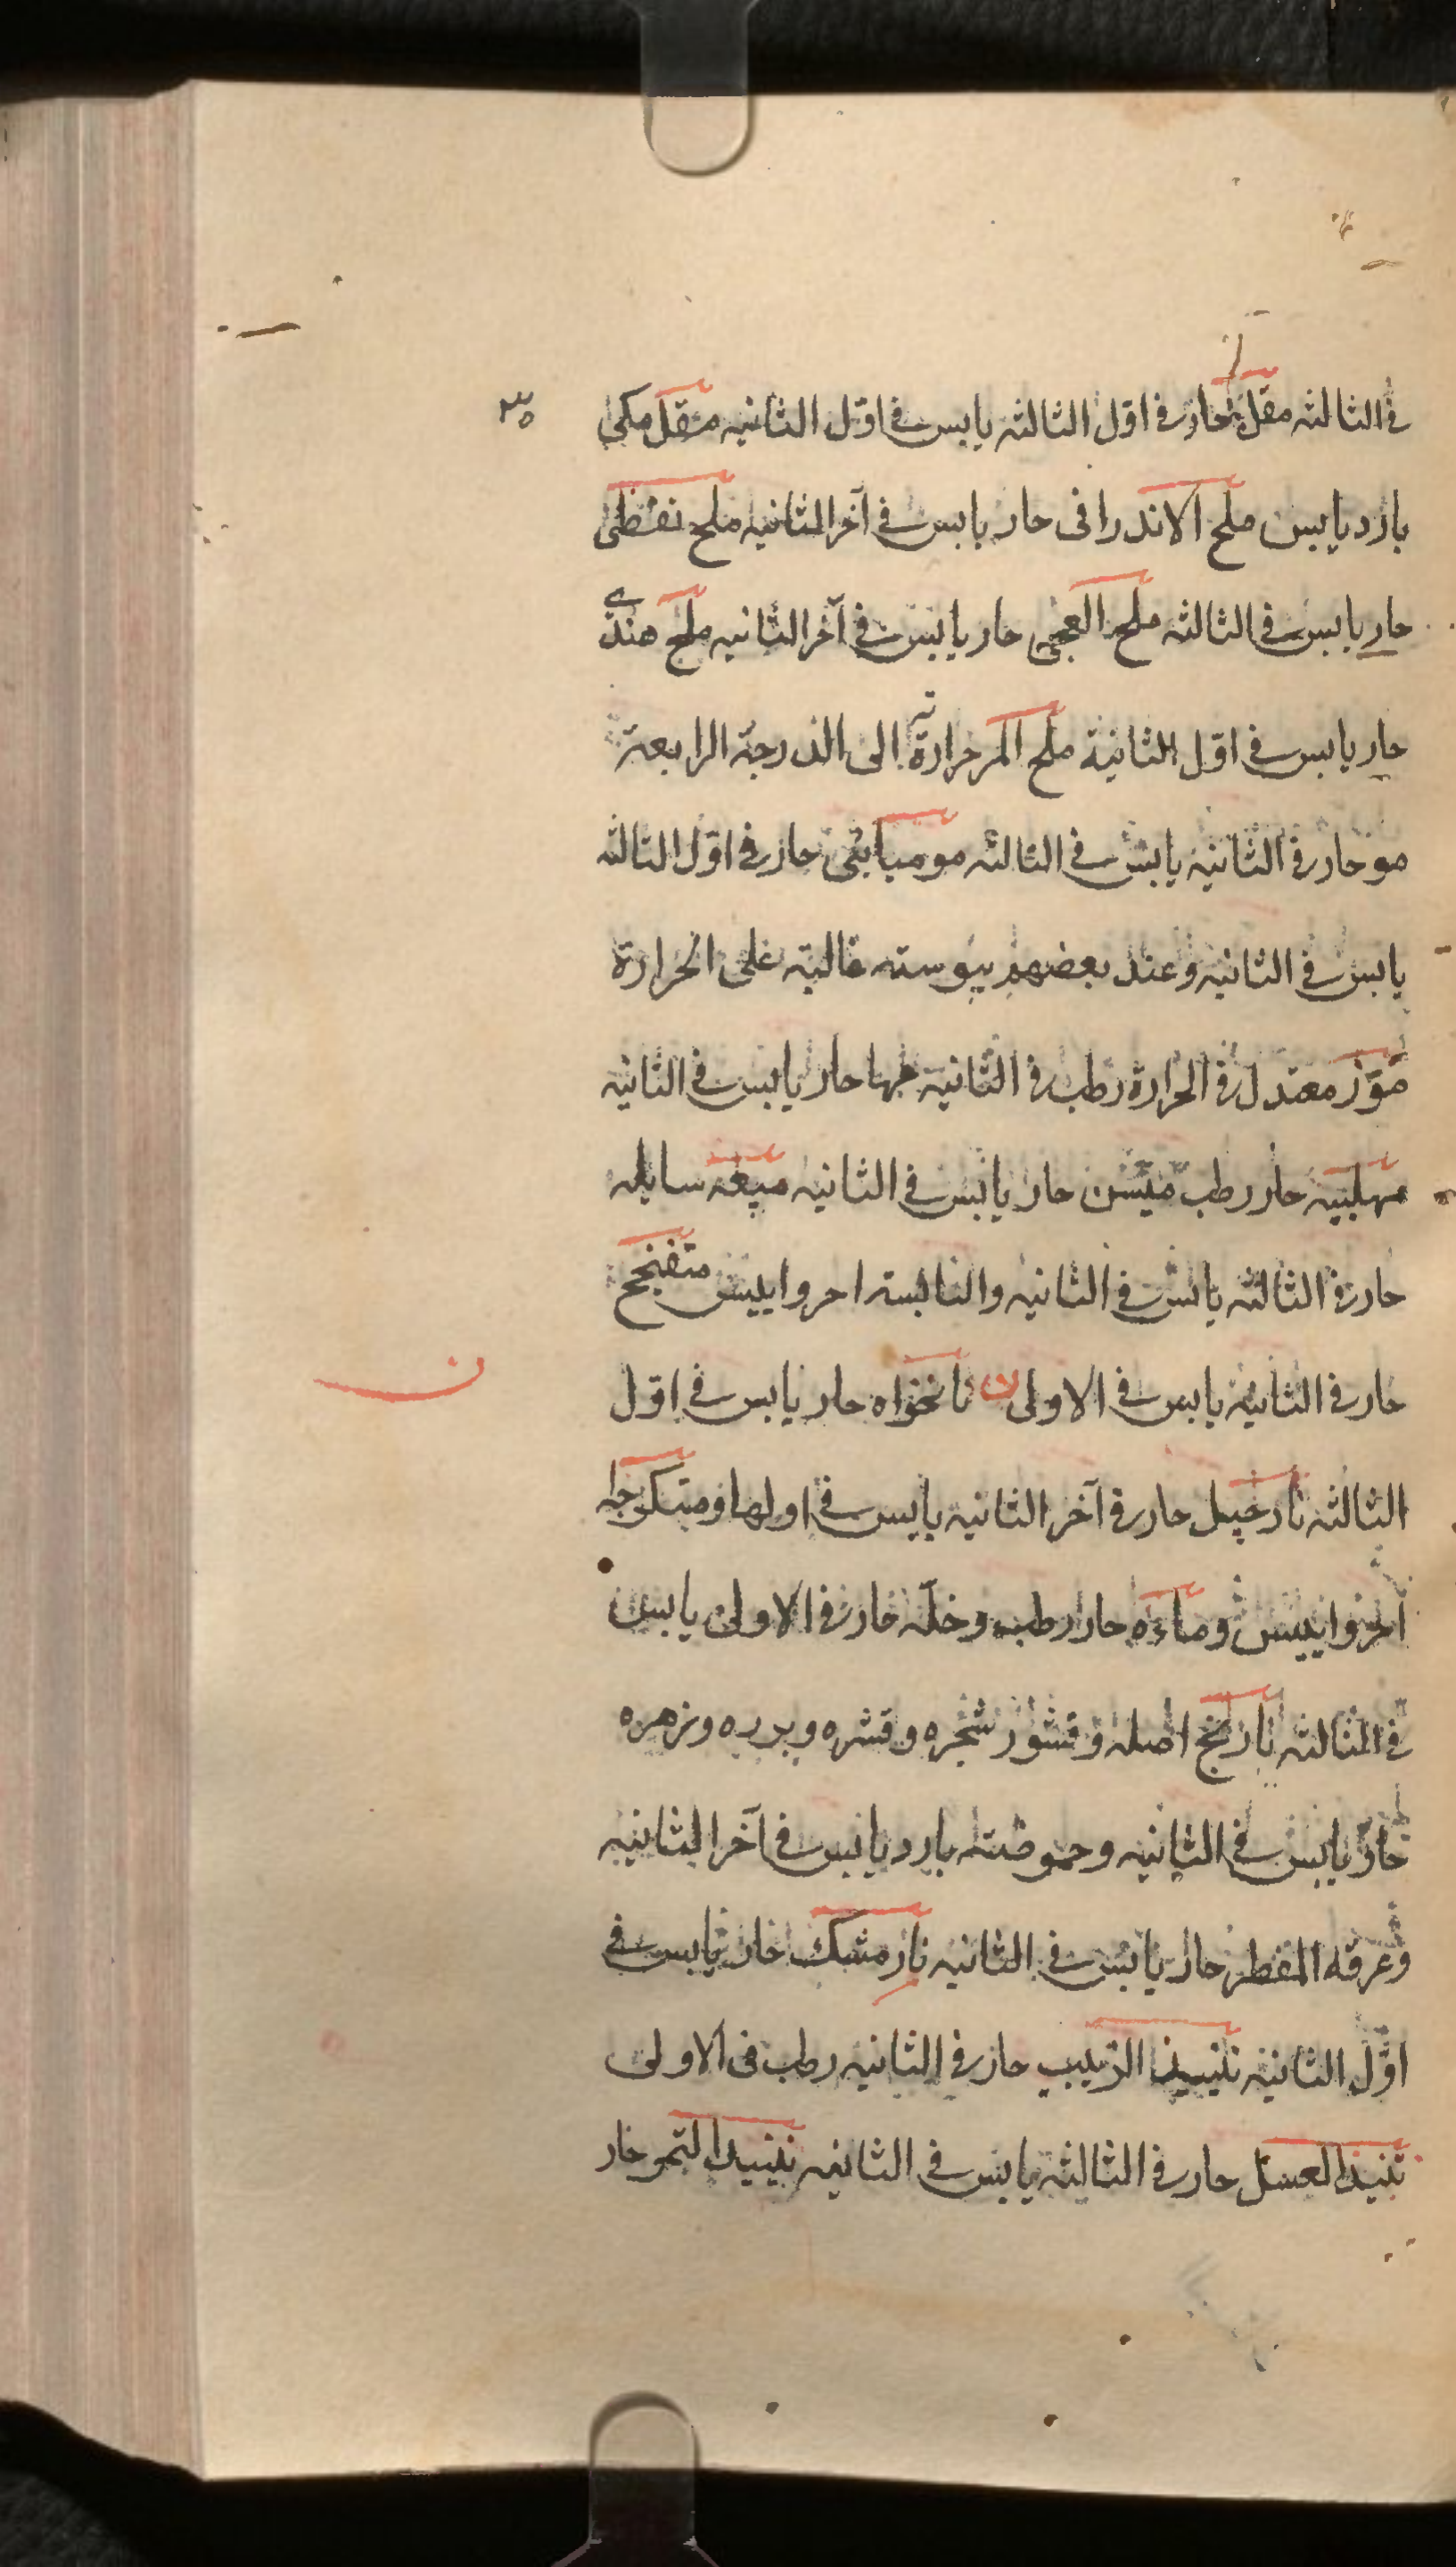 ٣٥
في الثالثه مقل حار في اوّل الثالثه يابس في اوّل الثانيه مقل مكي
بارد يابس ملح الاندرانى حار يابس في آخر الثانيه ملح نفطى
حار يابس في الثالثه ملح العجين حار يابس في آخر الثانيه ملح هندى
حار يابس في اوّل الثانية ملح المر حرارته الى الدرجة الرابعة
مو حار في الثانية يابس في الثالثه موميايى حار في اوّل الثالثه
يابس في الثانيه وعند بعضهم يبوسته غالبته على الحرارة
موز معتدل في الحرارة رطب في الثانية مها حار يابس في الثانية
مهلبيه حار رطب ميسن حار يابس في الثانيه ميعه سايله
حار في الثالثه يابس في الثانيه واليابسه احر وايبس ميفنجح
حار في الثانية يابس في الاولى ن نانخواه حار يابس في اوّل
الثالثه نارجيل حار في آخر الثانية يابس في اولها ومتكرجه
احر وايبس وماءه حار رطب وخلّه حار في الاولى يابس
في الثالثه نارنج اصله وقشور شجره وقشره وبزره وزهره
حارّ يابس في الثانيه وحموضته بارد يابس في آخر الثانيه
وعرقه المقطر حار يابس في الثانيه نارمشك حار يابس في
اوّل الثانية نبيذ الزبيب حار في الثانيه رطب فى الاولى
نبيذ العسل حار في الثالثة يابس في الثانيه نبيذ التمر حار
ن